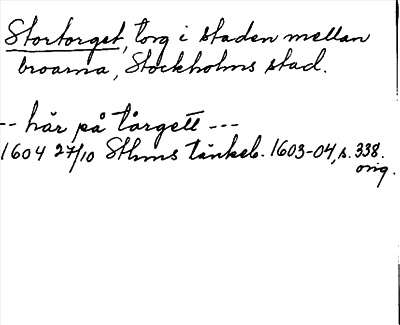 Stortorget, torg i staden mellan
broarna, Stockholms stad.
-- här på tårgett ---
1604 27/10 Sthms tänkeb. 1603-04, s. 338.
orig.